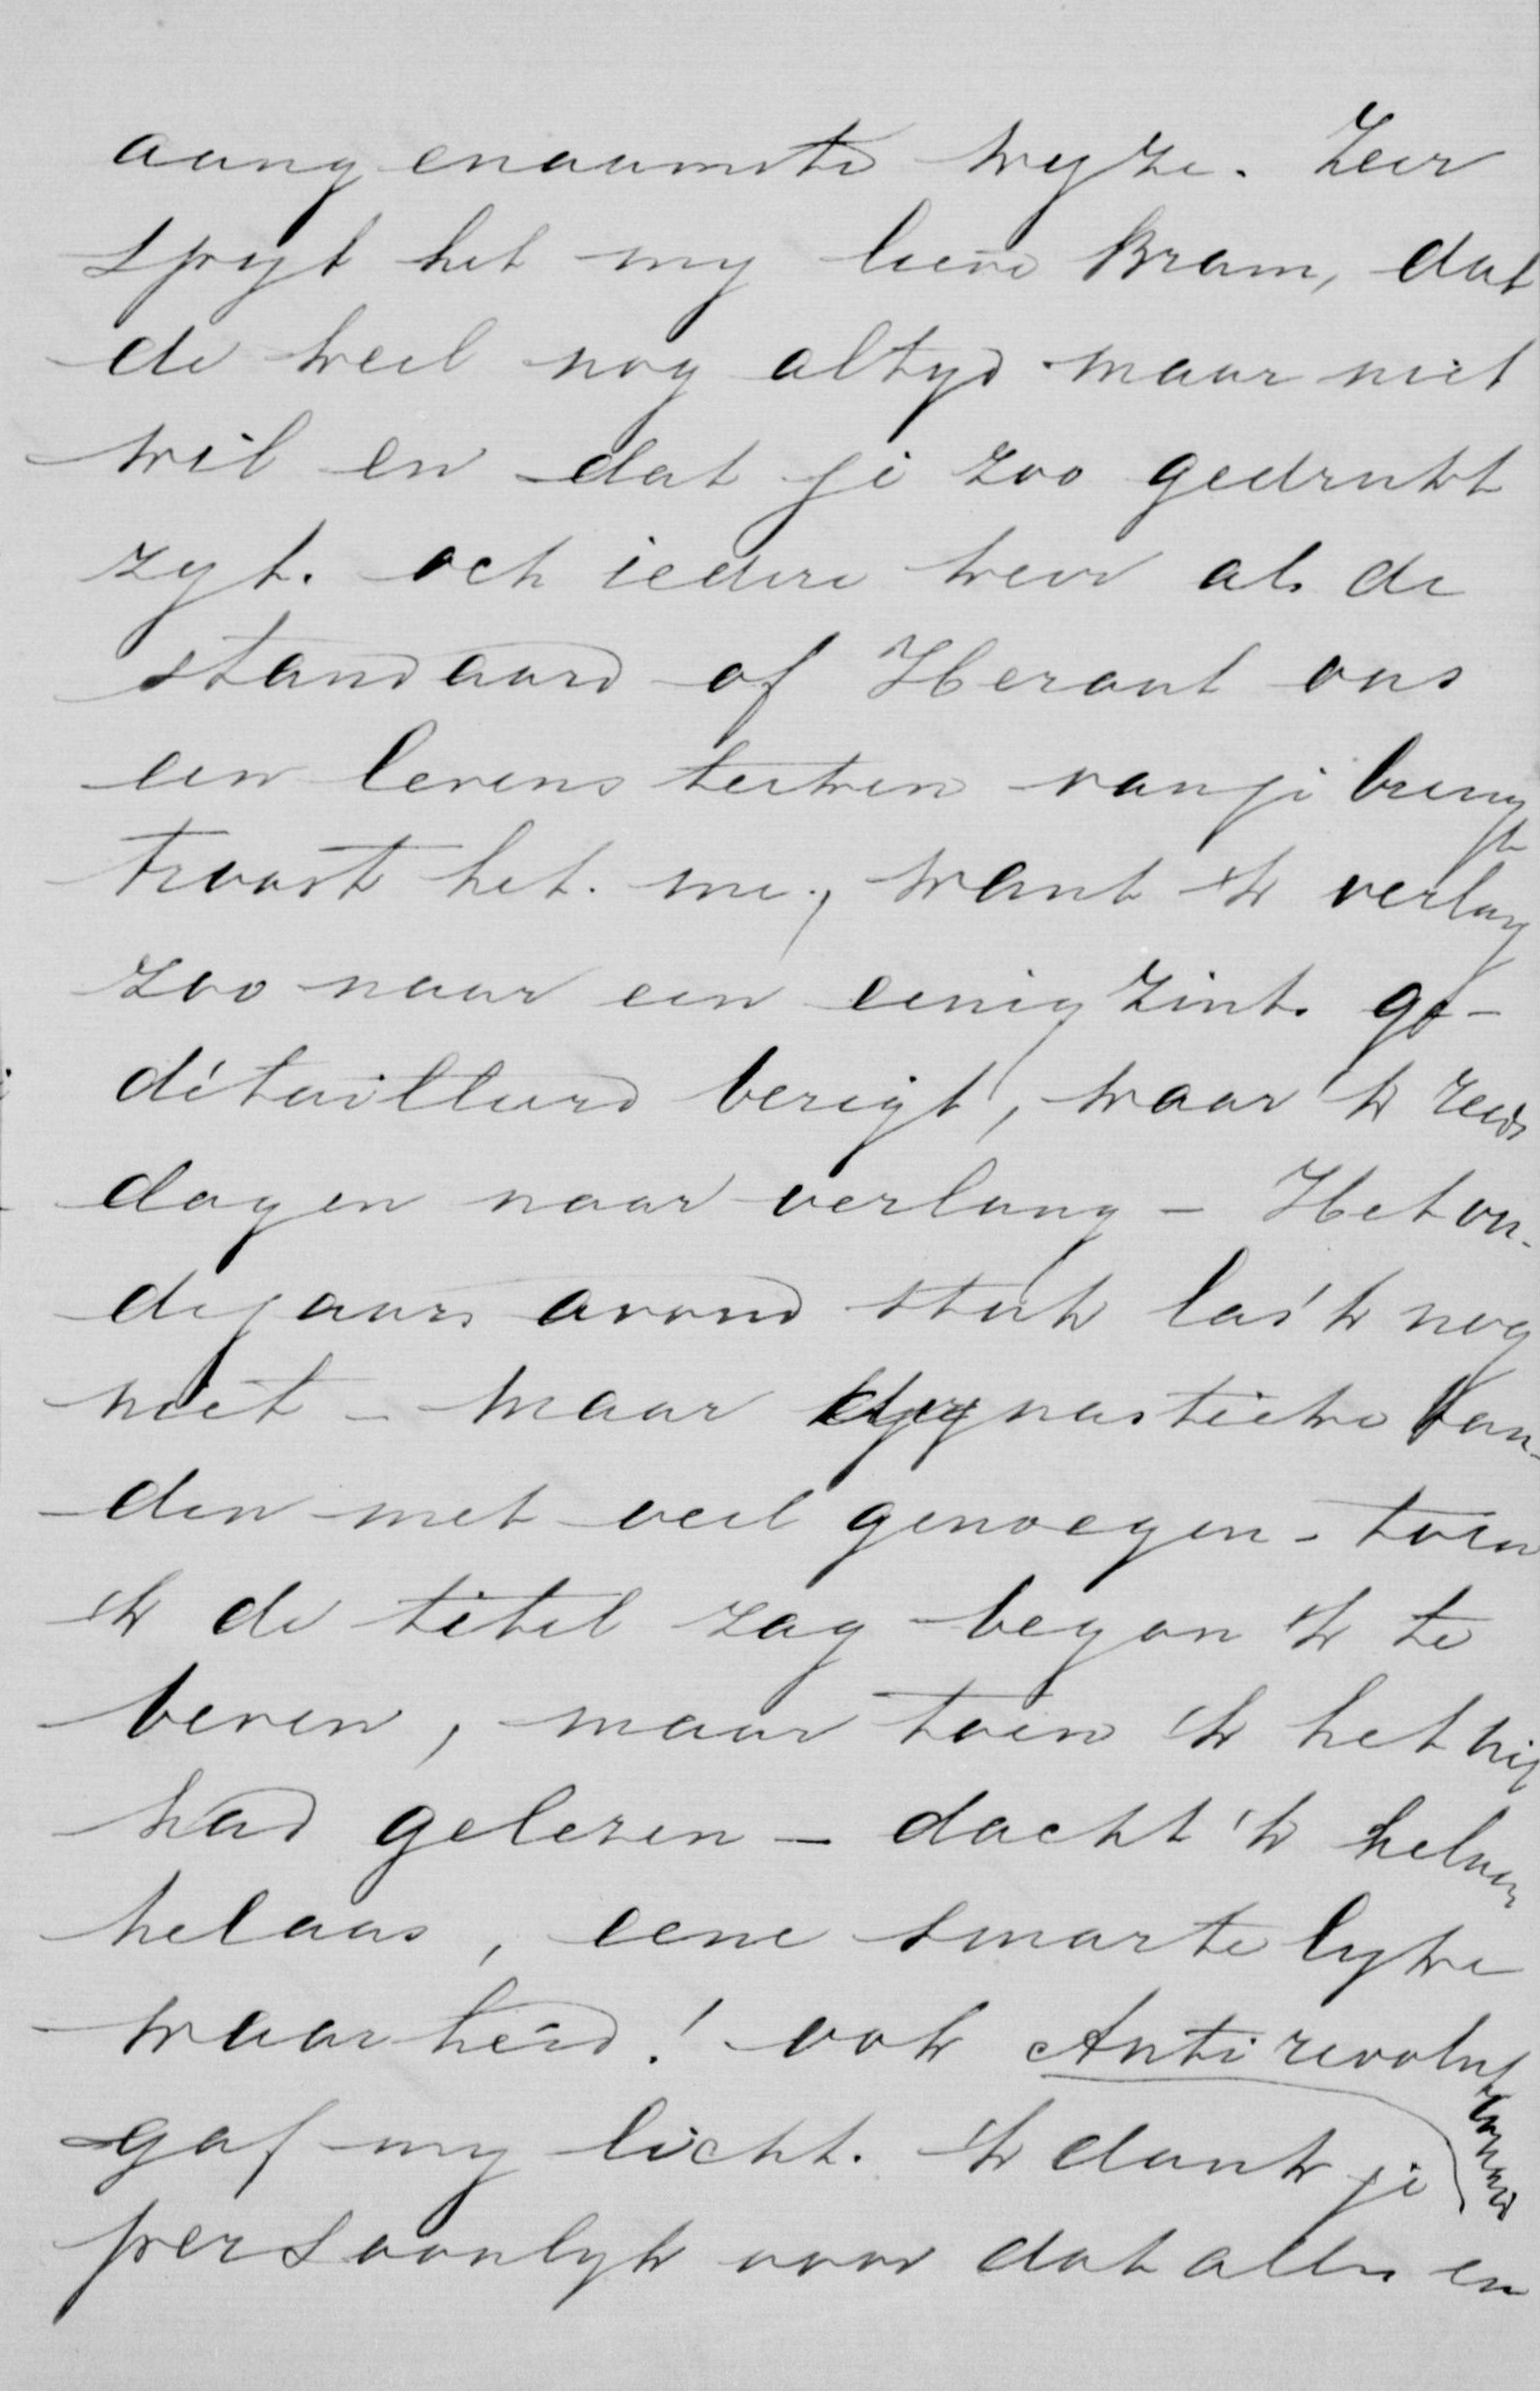 aangenaamste wyze. Zeer
spyt het my lieve Bram, dat
de keel nog altyd maar niet
wil en dat je zoo gedrukt
zyt. och iedere keer als de
standaard of Heraut ons
een levens teeken van je brengt
troost het me, want ik verlang
zoo naar een eenigzints ge-
détailleerd berigt, waar 'k reeds
dagen naar verlang - Het ou-
dejaars avond stuk las 'k nog
niet - maar dynastieke ban-
den met veel genoegen - toen
ik de titel zag begon ik te
beven, maar toen ik het
had gelezen - dacht 'k helaas
helaas, eene smartelyke
waarheid! ook Antirevolut
gaf my licht. ik dank je
persoonlyk voor dat alles en